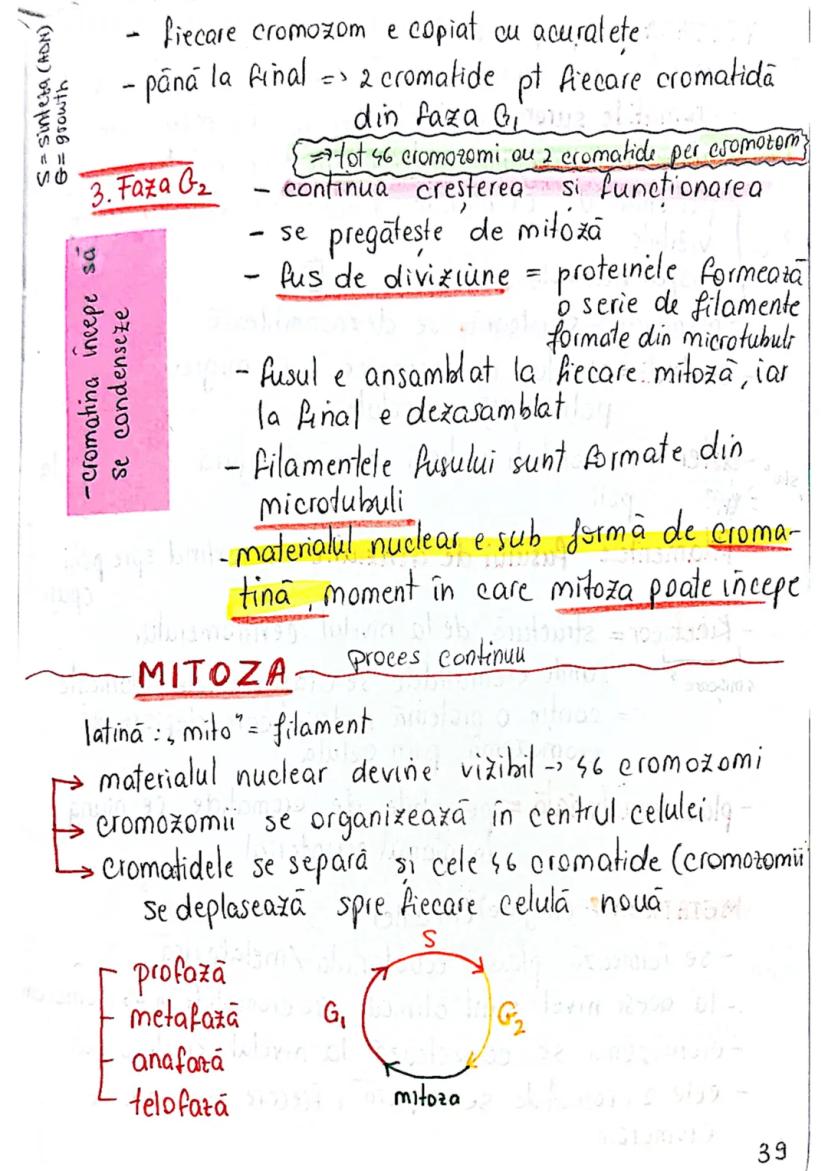 S = sinteja (ADN)
G = growth
- fiecare cromozom e copiat cu acuratețe
- până la final => 2 cromatide pt fiecare cromatidă
din faza G1
=> tot 46 cromozomi, cu 2 cromatide per cromozom
3. Faza G2
- continua creșterea și funcționarea
- se pregătește de mitoză
- fus de diviziune = proteinele formează
o serie de filamente
formate din microtubuli
-cromatina începe să
se condenseze
- fusul e ansamblat la fiecare mitoză, iar
la final e dezasamblat
- filamentele fusului sunt formate din
microtubuli
- materialul nuclear e sub formă de croma-
tină, moment în care mitoza poate începe
MITOZA proces continuu
latină : „mito" = filament
materialul nuclear devine vizibil -> 46 cromozomi
cromozomii se organizează în centrul celulei
cromatidele se separă și cele 46 cromatide (cromozomii
se deplasează spre fiecare celulă nouă
profază
metafază
anafază
telofază
S
G1
G2
mitoza
39